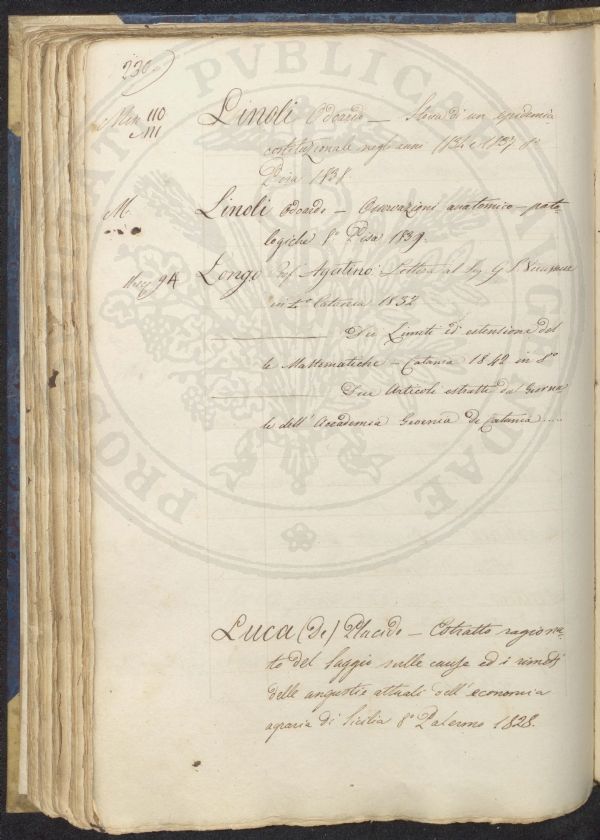 230
Misc 110
111
Linoli Odoardo — Storia di un epidemia
costituzionale negli anni 1836 e 1837 8°
Pisa 1838.
M.
Linoli Odoardo — Osservazioni anatomico-pato-
logiche 8° Pisa 1839.
Misc 94
Longo Agatino Lettera al Sig. G. P. Vieusseux
in 4° Catania 1832
Dei Limiti ed estensione del
le Mattematiche — Catania 1842 in 8°
Due Articoli estratti dal Giorna
le dell' Accademia Gioenia di Catania ....
Luca (De) Placido — Estratto ragiona-
to del saggio sulle cause ed i rimedj
delle angustie attuali dell' economia
agraria di Sicilia 8° Palermo 1828.
PROSPERITATI PUBLICAE AUGENDAE